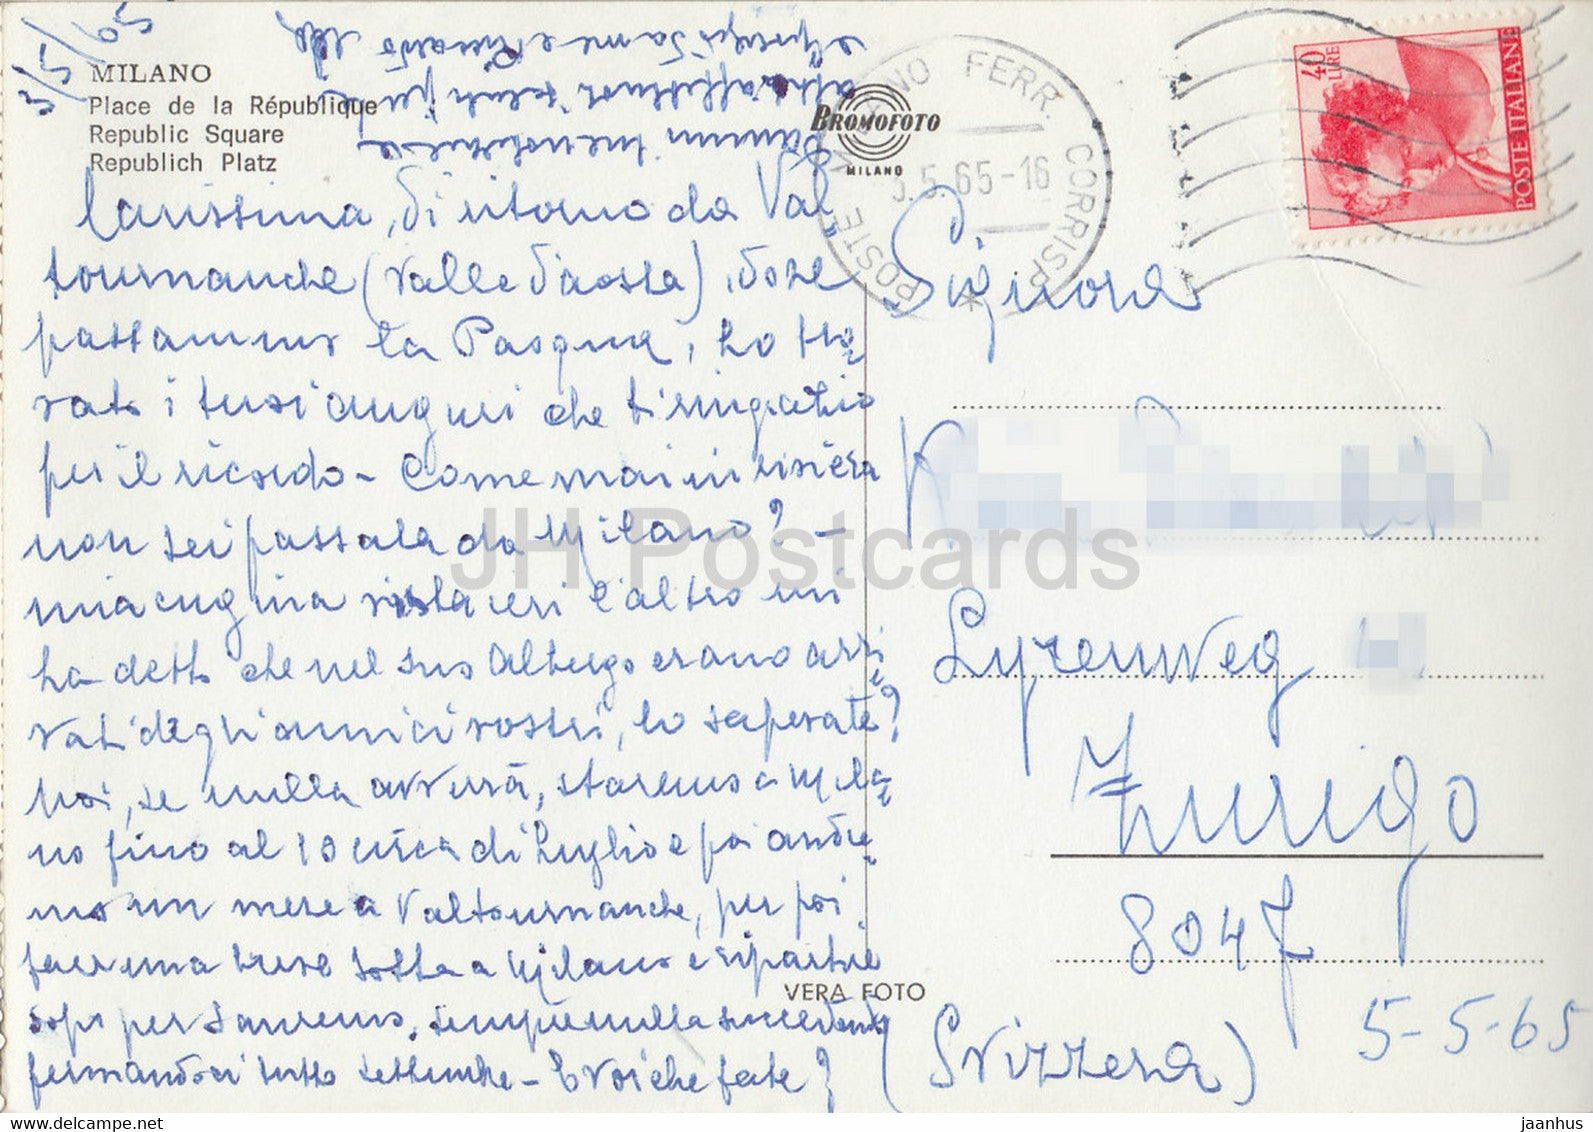 5/5/65
MILANO
Place de la République
Republic Square
Republich Platz
BROMOFOTO
MILANO
POSTE MILANO FERR. CORRISP.
5.5.65-16
40 LIRE
POSTE ITALIANE
Carissima, di ritorno da Val
tournanche (Valle d'aosta), dove
passammo la Pasqua, ho tro
vato i tuoi auguri che ti ringrazio
per il ricordo - Come mai in riviera
non sei passata da Milano? -
mia cugina vista ieri l'altro mi
ha detto che nel suo albergo erano arri
vati degli amici vostri, lo sapevate?
Noi, se nulla avverrà, staremo a Mila
no fino al 10 circa di luglio e poi andre
mo un mese a Valtournanche, per poi
fare una breve sosta a Milano e ripartire
dopo per Sanremo, sempre nulla succedendo
fermandoci tutto settembre - E voi che fate?
affettuosi saluti
Signora
Lyrenweg
Zurigo
8047
(Svizzera)
5-5-65
VERA FOTO
JH Postcards
www.delcampe.net
jaanhus